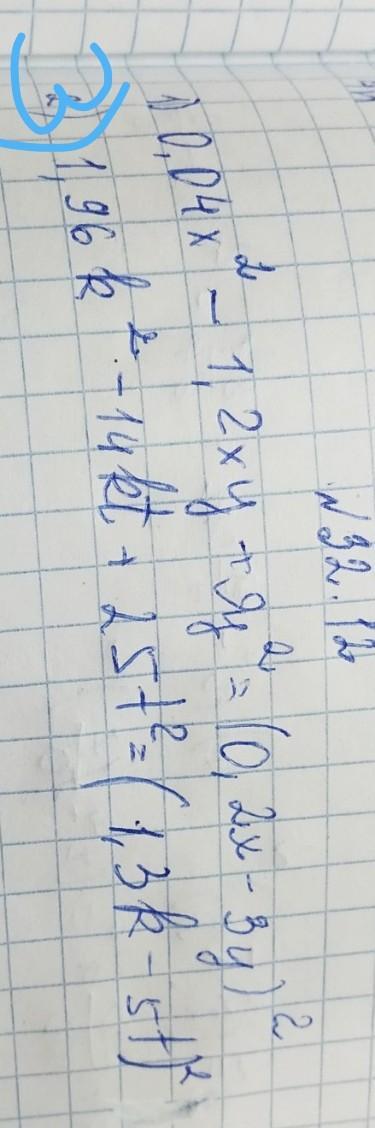 №32.12
1) 0,04x² - 1,2xy + 9y² = (0,2x - 3y)²
2) 1,96k² - 14kt + 25t² = (1,3k - 5t)²